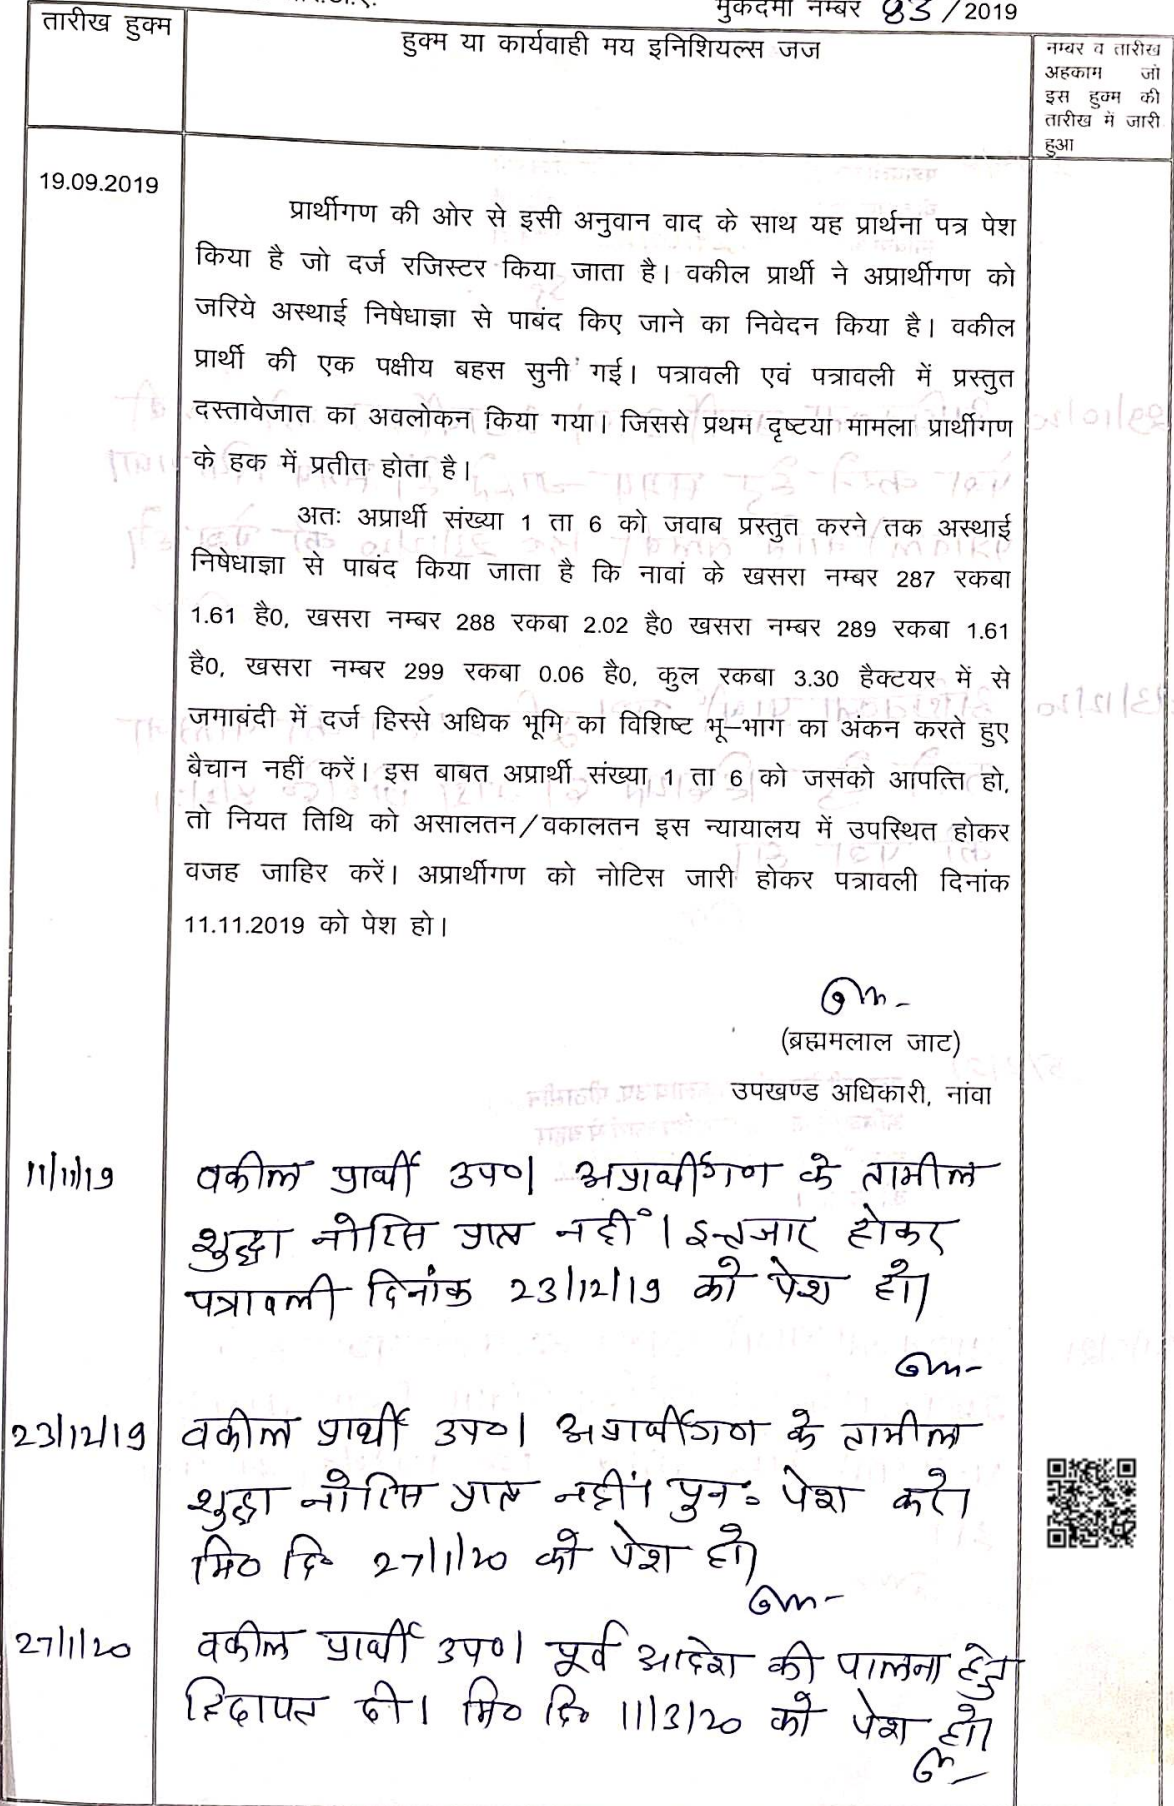 मुकदमा नम्बर 83/2019
तारीख हुक्म
हुक्म या कार्यवाही मय इनिशियल्स जज
नम्बर व तारीख
अहकाम जो
इस हुक्म की
तारीख में जारी
हुआ
19.09.2019
प्रार्थीगण की ओर से इसी अनुवान वाद के साथ यह प्रार्थना पत्र पेश
किया है जो दर्ज रजिस्टर किया जाता है। वकील प्रार्थी ने अप्रार्थीगण को
जरिये अस्थाई निषेधाज्ञा से पाबंद किए जाने का निवेदन किया है। वकील
प्रार्थी की एक पक्षीय बहस सुनी गई। पत्रावली एवं पत्रावली में प्रस्तुत
दस्तावेजात का अवलोकन किया गया। जिससे प्रथम दृष्टया मामला प्रार्थीगण
के हक में प्रतीत होता है।
अतः अप्रार्थी संख्या 1 ता 6 को जवाब प्रस्तुत करने तक अस्थाई
निषेधाज्ञा से पाबंद किया जाता है कि नावां के खसरा नम्बर 287 रकबा
1.61 है0, खसरा नम्बर 288 रकबा 2.02 है0 खसरा नम्बर 289 रकबा 1.61
है0, खसरा नम्बर 299 रकबा 0.06 है0, कुल रकबा 3.30 हैक्टयर में से
जमाबंदी में दर्ज हिस्से अधिक भूमि का विशिष्ट भू–भाग का अंकन करते हुए
बैचान नहीं करें। इस बाबत अप्रार्थी संख्या 1 ता 6 को जसको आपत्ति हो,
तो नियत तिथि को असालतन/वकालतन इस न्यायालय में उपस्थित होकर
वजह जाहिर करें। अप्रार्थीगण को नोटिस जारी होकर पत्रावली दिनांक
11.11.2019 को पेश हो।
(ब्रह्ममलाल जाट)
उपखण्ड अधिकारी, नांवा
11/11/19 वकील प्रार्थी उप०। अप्रार्थीगण के तामील
शुद्धा नोटिस प्राप्त नहीं। इन्तजार होकर
पत्रावली दिनांक 23/12/19 को पेश हो।
23/12/19 वकील प्रार्थी उप०। अप्रार्थीगण के तामील
शुद्धा नोटिस प्राप्त नहीं। पुनः पेश करे।
मि० दि० 27/1/20 को पेश हो।
27/1/20 वकील प्रार्थी उप०। पूर्व आदेश की पालना हेतु
हिदायत दी। मि० दि० 11/3/20 को पेश हो।